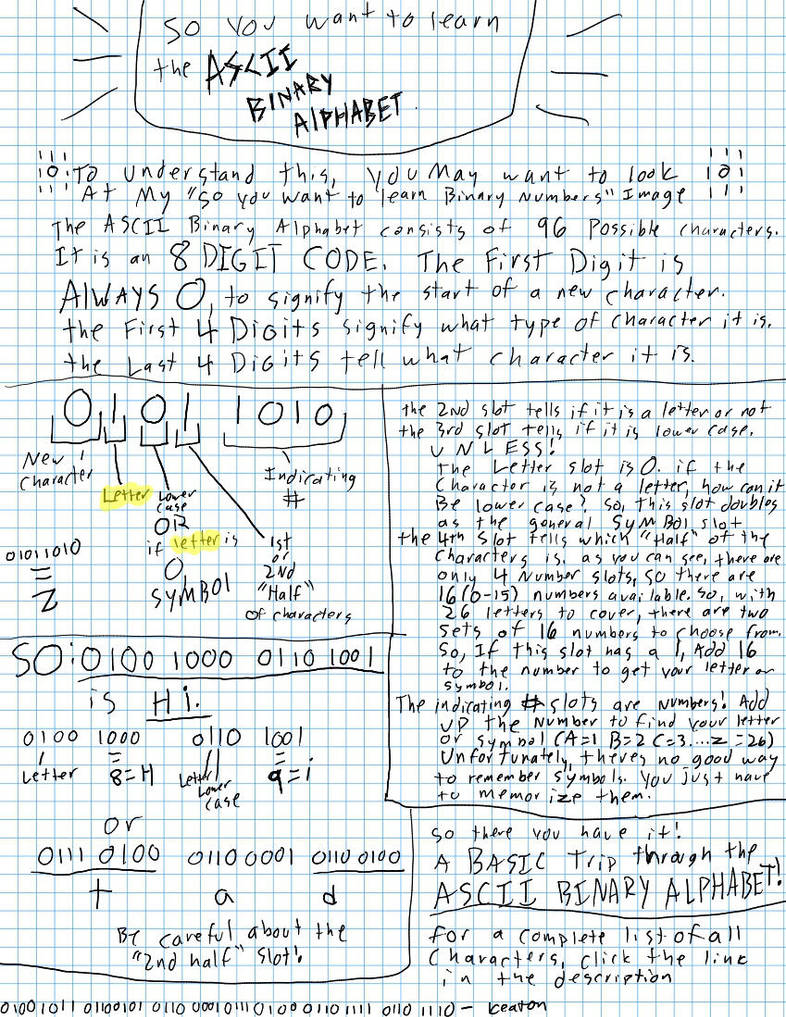 So you want to learn
the ASCII
BINARY
ALPHABET.
To understand this, you May want to look
At My "So you want to learn Binary Numbers" Image
The ASCII Binary Alphabet consists of 96 Possible characters.
It is an 8 DIGIT CODE. The First Digit is
ALWAYS 0, to signify the start of a new character.
the First 4 Digits signify what type of character it is.
the Last 4 Digits tell what character it is.
0 1 0 1 1 0 1 0
New
Character
Letter
Lower
case
OR
if letter is
0
SYMBOl
1st
or
2ND
"Half"
of characters
Indicating
#
01011010
=
Z
the 2nd slot tells if it is a letter or not
the 3rd slot tells if it is lower case.
UNLESS!
The Letter slot is 0. if the
Character is not a letter, how can it
Be lower case? So, this slot doubles
as the general SYMBOl slot
the 4th slot tells which "Half" of the
characters it is. as you can see, there are
only 4 Number slots, so there are
16 (0-15) numbers available. So, with
26 letters to cover, there are two
sets of 16 numbers to choose from.
So, If this slot has a 1, Add 16
to the number to get your letter or
symbol.
The indicating # slots are numbers! Add
up the number to find your letter
or symbol (A=1 B=2 C=3...Z=26)
Unfortunately, theres no good way
to remember symbols. You just have
to memorize them.
SO: 0100 1000 0110 1001
is Hi.
0100 1000 0110 1001
Letter 8=H Letter Lower case 9=i
or
0111 0100 0110 0001 0110 0100
t a d
Be careful about the
"2nd half" slot!
so there you have it!
A BASIC Trip through the
ASCII BINARY ALPHABET!
for a complete list of all
Characters, click the link
in the description
01001011 01100101 0110 0001 01110100 01101111 0110 1110 - Keaton